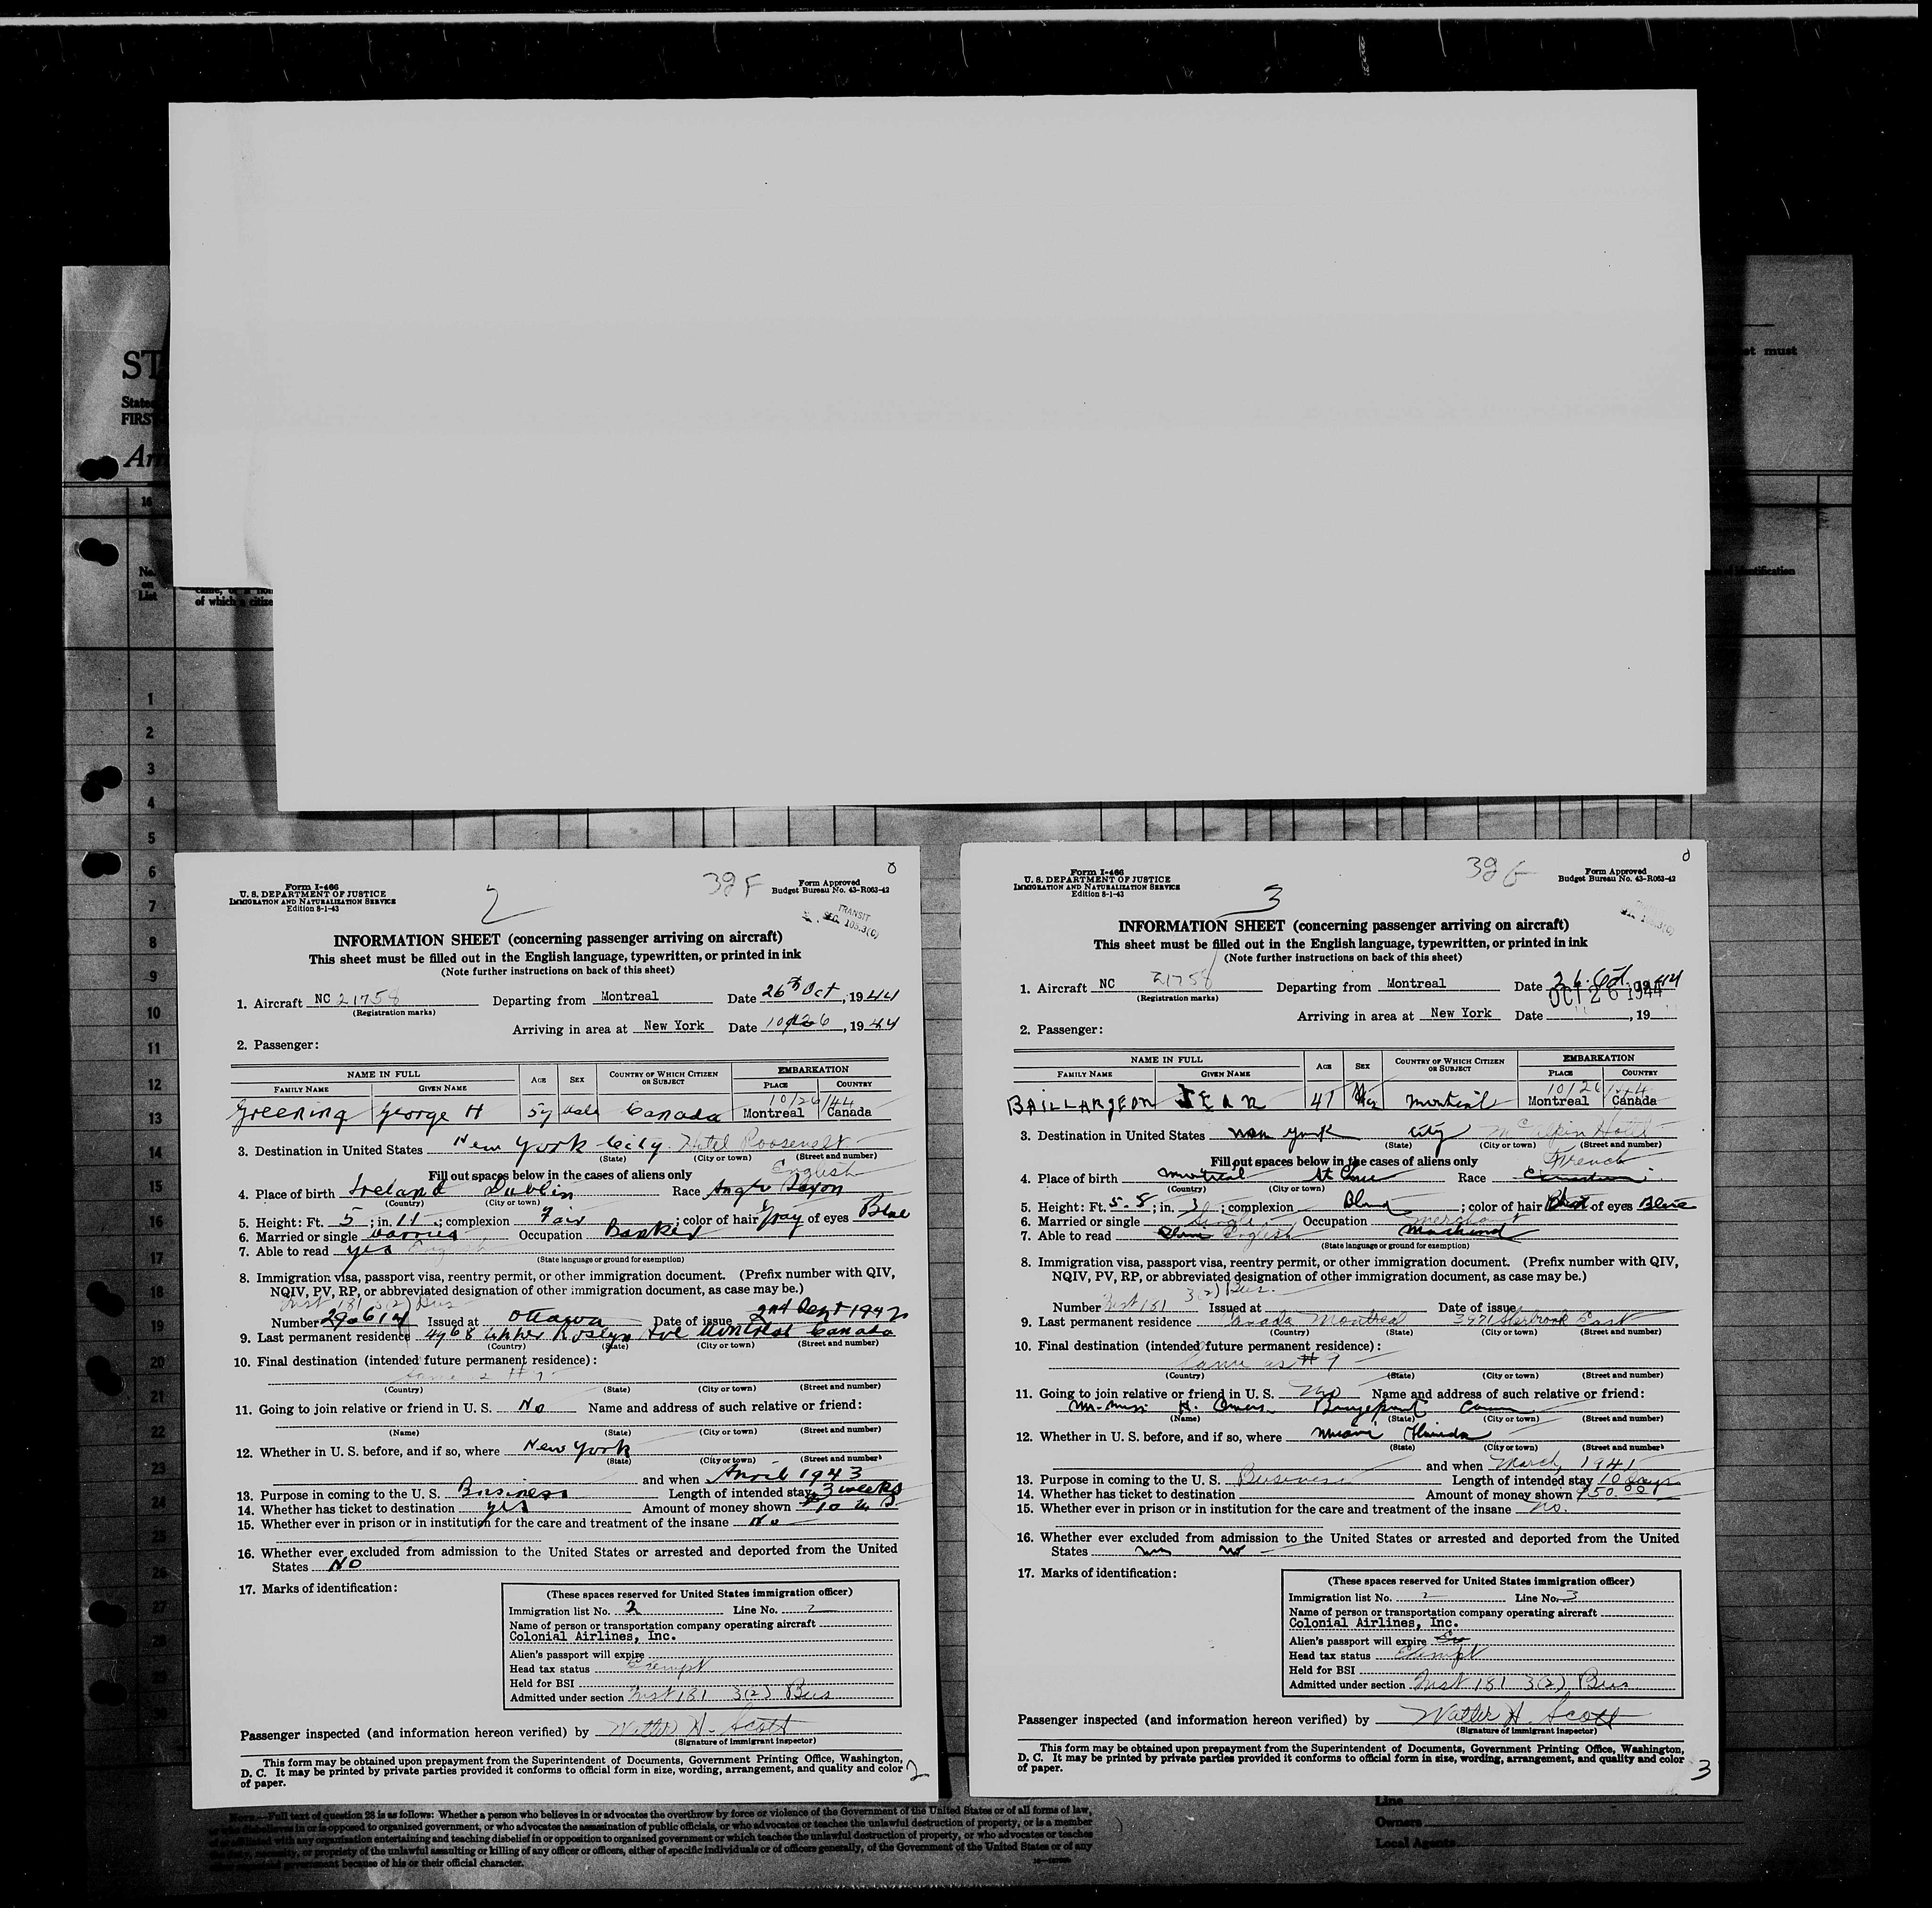 ST
States
FIRST
Am
ot must
16
No.
on
List
of which a citize
of identification
1
2
3
4
5
6
7
8
9
10
11
12
13
14
15
16
17
18
19
20
21
22
23
24
25
26
27
28
Form I-466
U. S. DEPARTMENT OF JUSTICE
IMMIGRATION AND NATURALIZATION SERVICE
Edition 8-1-43
2
39 F
Form Approved
Budget Bureau No. 43-R063-42
TRANSIT
SEC. 105.3(c)
INFORMATION SHEET (concerning passenger arriving on aircraft)
This sheet must be filled out in the English language, typewritten, or printed in ink
(Note further instructions on back of this sheet)
1. Aircraft NC 21758 Departing from Montreal Date 26th Oct, 1944
(Registration marks)
Arriving in area at New York Date 10/26, 1944
2. Passenger:
NAME IN FULL AGE SEX COUNTRY OF WHICH CITIZEN OR SUBJECT EMBARKATION
FAMILY NAME GIVEN NAME PLACE COUNTRY
10/26/44
Greening George H 59 Male Canada Montreal Canada
3. Destination in United States New York City Hotel Roosevelt
(State) (City or town) (Street and number)
Fill out spaces below in the cases of aliens only English
4. Place of birth Ireland Dublin Race Anglo Saxon
(Country) (City or town)
5. Height: Ft. 5; in. 11; complexion Fair; color of hair Gray of eyes Blue
6. Married or single Married Occupation Banker
7. Able to read yes English
(State language or ground for exemption)
8. Immigration visa, passport visa, reentry permit, or other immigration document. (Prefix number with QIV,
NQIV, PV, RP, or abbreviated designation of other immigration document, as case may be.)
Inst 181 3(2) Bus
Number 290614 Issued at Ottawa Date of issue 2nd Sept 1942
9. Last permanent residence 4968 Upper Roslyn Ave Montreal Canada
(Country) (State) (City or town) (Street and number)
10. Final destination (intended future permanent residence):
(Country) (State) (City or town) (Street and number)
11. Going to join relative or friend in U. S. No Name and address of such relative or friend:
(Name) (State) (City or town) (Street and number)
12. Whether in U. S. before, and if so, where New York
(State) (City or town) (Street and number)
and when April 1943
13. Purpose in coming to the U. S. Business Length of intended stay 3 weeks
14. Whether has ticket to destination yes Amount of money shown
15. Whether ever in prison or in institution for the care and treatment of the insane No
16. Whether ever excluded from admission to the United States or arrested and deported from the United
States NO
17. Marks of identification:
(These spaces reserved for United States immigration officer)
Immigration list No. 2 Line No. 2
Name of person or transportation company operating aircraft
Colonial Airlines, Inc.
Alien's passport will expire
Head tax status Exempt
Held for BSI
Admitted under section Inst 181 3(2) Bus
Passenger inspected (and information hereon verified) by Walter H. Scott
(Signature of immigrant inspector)
This form may be obtained upon prepayment from the Superintendent of Documents, Government Printing Office, Washington,
D. C. It may be printed by private parties provided it conforms to official form in size, wording, arrangement, and quality and color
of paper.
2
Form I-466
U. S. DEPARTMENT OF JUSTICE
IMMIGRATION AND NATURALIZATION SERVICE
Edition 8-1-43
3
39 G
Form Approved
Budget Bureau No. 43-R063-42
INFORMATION SHEET (concerning passenger arriving on aircraft)
This sheet must be filled out in the English language, typewritten, or printed in ink
(Note further instructions on back of this sheet)
1. Aircraft NC 21758 Departing from Montreal Date 26 Oct. 1944
(Registration marks)
OCT 26 1944
Arriving in area at New York Date , 19
2. Passenger:
NAME IN FULL AGE SEX COUNTRY OF WHICH CITIZEN OR SUBJECT EMBARKATION
FAMILY NAME GIVEN NAME PLACE COUNTRY
10/26/44
BAILLARGEON JEAN 47 Montreal Montreal Canada
3. Destination in United States New York City McAlpin Hotel
(State) (City or town) (Street and number)
Fill out spaces below in the cases of aliens only French
4. Place of birth Montreal Race Canadian
(Country) (City or town)
5. Height: Ft. 5-8; in. 3; complexion Blond; color of hair of eyes Blue
6. Married or single Single Occupation merchant
7. Able to read English
(State language or ground for exemption)
8. Immigration visa, passport visa, reentry permit, or other immigration document. (Prefix number with QIV,
NQIV, PV, RP, or abbreviated designation of other immigration document, as case may be.)
Number Inst 181 3(2) Bus. Issued at Date of issue
9. Last permanent residence Canada Montreal 3971 Sherbrooke East
(Country) (State) (City or town) (Street and number)
10. Final destination (intended future permanent residence):
Same as # 9
(Country) (State) (City or town) (Street and number)
11. Going to join relative or friend in U. S. no Name and address of such relative or friend:
H. Bridgeport Conn
(Name) (State) (City or town) (Street and number)
12. Whether in U. S. before, and if so, where Miami Florida
(State) (City or town) (Street and number)
and when March 1941
13. Purpose in coming to the U. S. Business Length of intended stay 10 days
14. Whether has ticket to destination Amount of money shown $50.00
15. Whether ever in prison or in institution for the care and treatment of the insane no.
16. Whether ever excluded from admission to the United States or arrested and deported from the United
States no
17. Marks of identification:
(These spaces reserved for United States immigration officer)
Immigration list No. 2 Line No. 3
Name of person or transportation company operating aircraft
Colonial Airlines, Inc.
Alien's passport will expire
Head tax status Exempt
Held for BSI
Admitted under section Inst 181 3(2) Bus
Passenger inspected (and information hereon verified) by Walter H. Scott
(Signature of immigrant inspector)
This form may be obtained upon prepayment from the Superintendent of Documents, Government Printing Office, Washington,
D. C. It may be printed by private parties provided it conforms to official form in size, wording, arrangement, and quality and color
of paper.
3
NOTE.—Full text of question 28 is as follows: Whether a person who believes in or advocates the overthrow by force or violence of the Government of the United States or of all forms of law,
or who disbelieves in or is opposed to organized government, or who advocates the assassination of public officials, or who advocates or teaches the unlawful destruction of property, or is a member
of or affiliated with any organization entertaining and teaching disbelief in or opposition to organized government or which teaches the unlawful destruction of property, or who advocates or teaches
the duty, necessity, or propriety of the unlawful assaulting or killing of any officer or officers, either of specific individuals or of officers generally, of the Government of the United States or of any
other organized government because of his or their official character.
Line
Owners
Local Agents